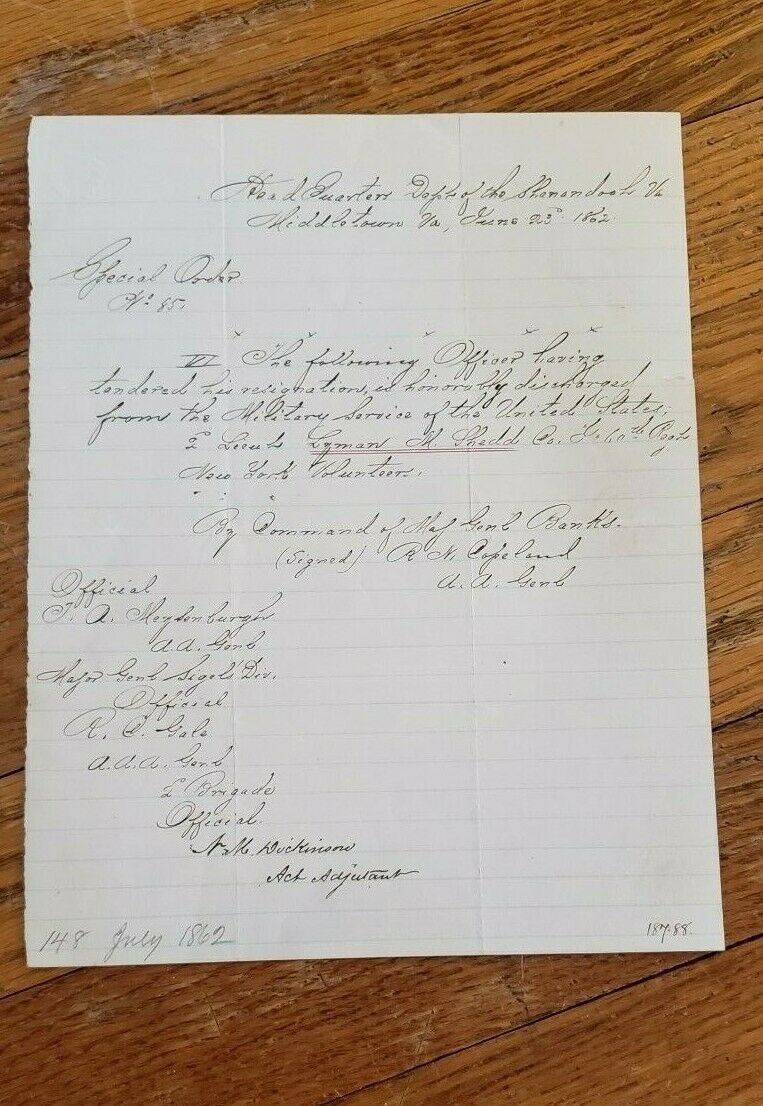 Head Quarters Dept. of the Shenandoah Va
Middletown Va, June 23d 1862.
Special Order
No 85.
x x x x x
VI The following Officer having
tendered his resignation, is honorably discharged
from the Military Service of the United States;
2d Lieut Lyman M. Shedd Co. F. 60th Regt
New York Volunteers.
By Command of Maj Genl Banks.
(Signed) R M Copeland
A. A. Genl
Official
T. A. Meysenburgh
A.A. Genl
Major Genl Sigel's Div.
Official
R. C. Gale
A.A.A. Genl
2d Brigade
Official.
N. M. Dickinson
Act Adjutant
148 July 1862